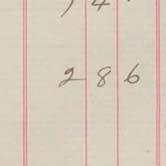 4
2 8 6